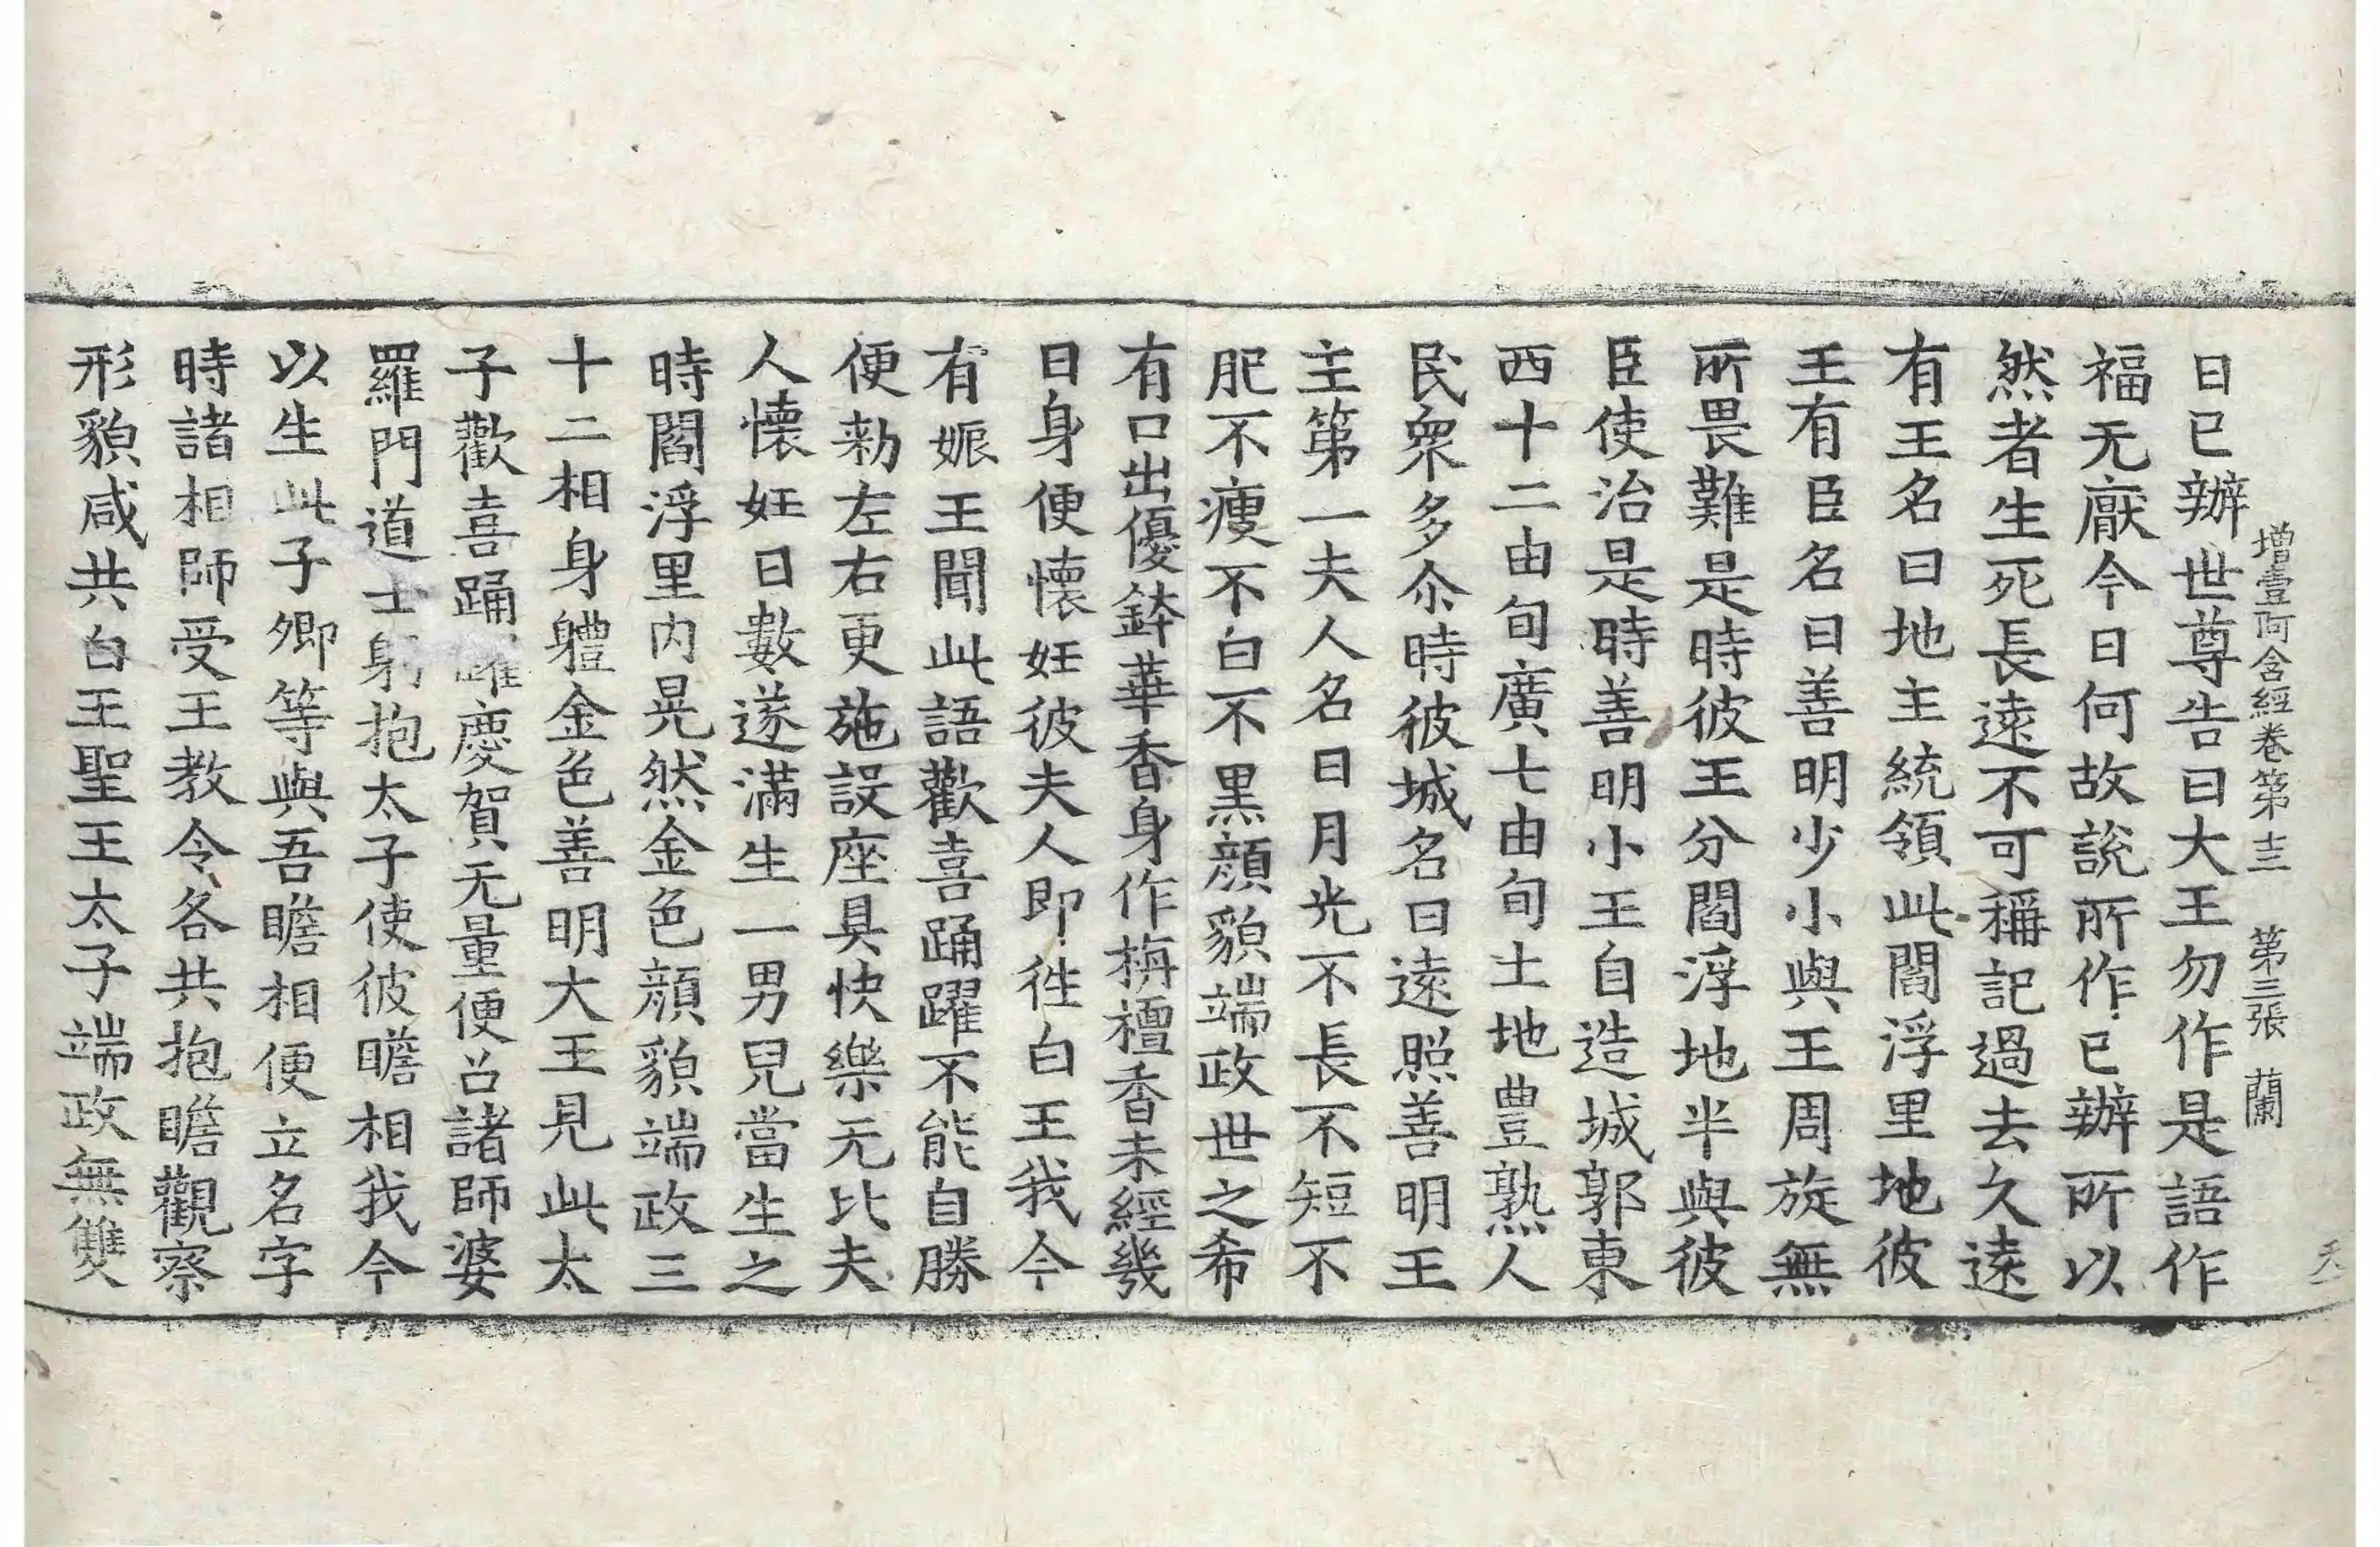 增壹阿含經卷第十三 第三張 蘭
日已辦世尊告曰大王勿作是語作
福无厭今日何故說所作已辦所以
然者生死長遠不可稱記過去久遠
有王名曰地主統領此閻浮里地彼
王有臣名曰善明少小與王周旋無
所畏難是時彼王分閻浮地半與彼
臣使治是時善明小王自造城郭東
西十二由旬廣七由旬土地豊熟人
民衆多尒時彼城名曰遠照善明王
主第一夫人名曰月光不長不短不
肥不瘦不白不黒顔貌端政世之希
有口出優鉢華香身作栴檀香未經幾
日身便懷妊彼夫人即徃白王我今
有娠王聞此語歡喜踊躍不能自勝
便勑左右更施設座具快樂无比夫
人懷妊日數遂滿生一男兒當生之
時閻浮里内晃然金色顔貌端政三
十二相身軆金色善明大王見此太
子歡喜踊躍慶賀无量便召諸師婆
羅門道士躬抱太子使彼瞻相我今
以生此子卿等與吾瞻相便立名字
時諸相師受王教令各共抱瞻觀察
形貌咸共白王聖王太子端政無雙